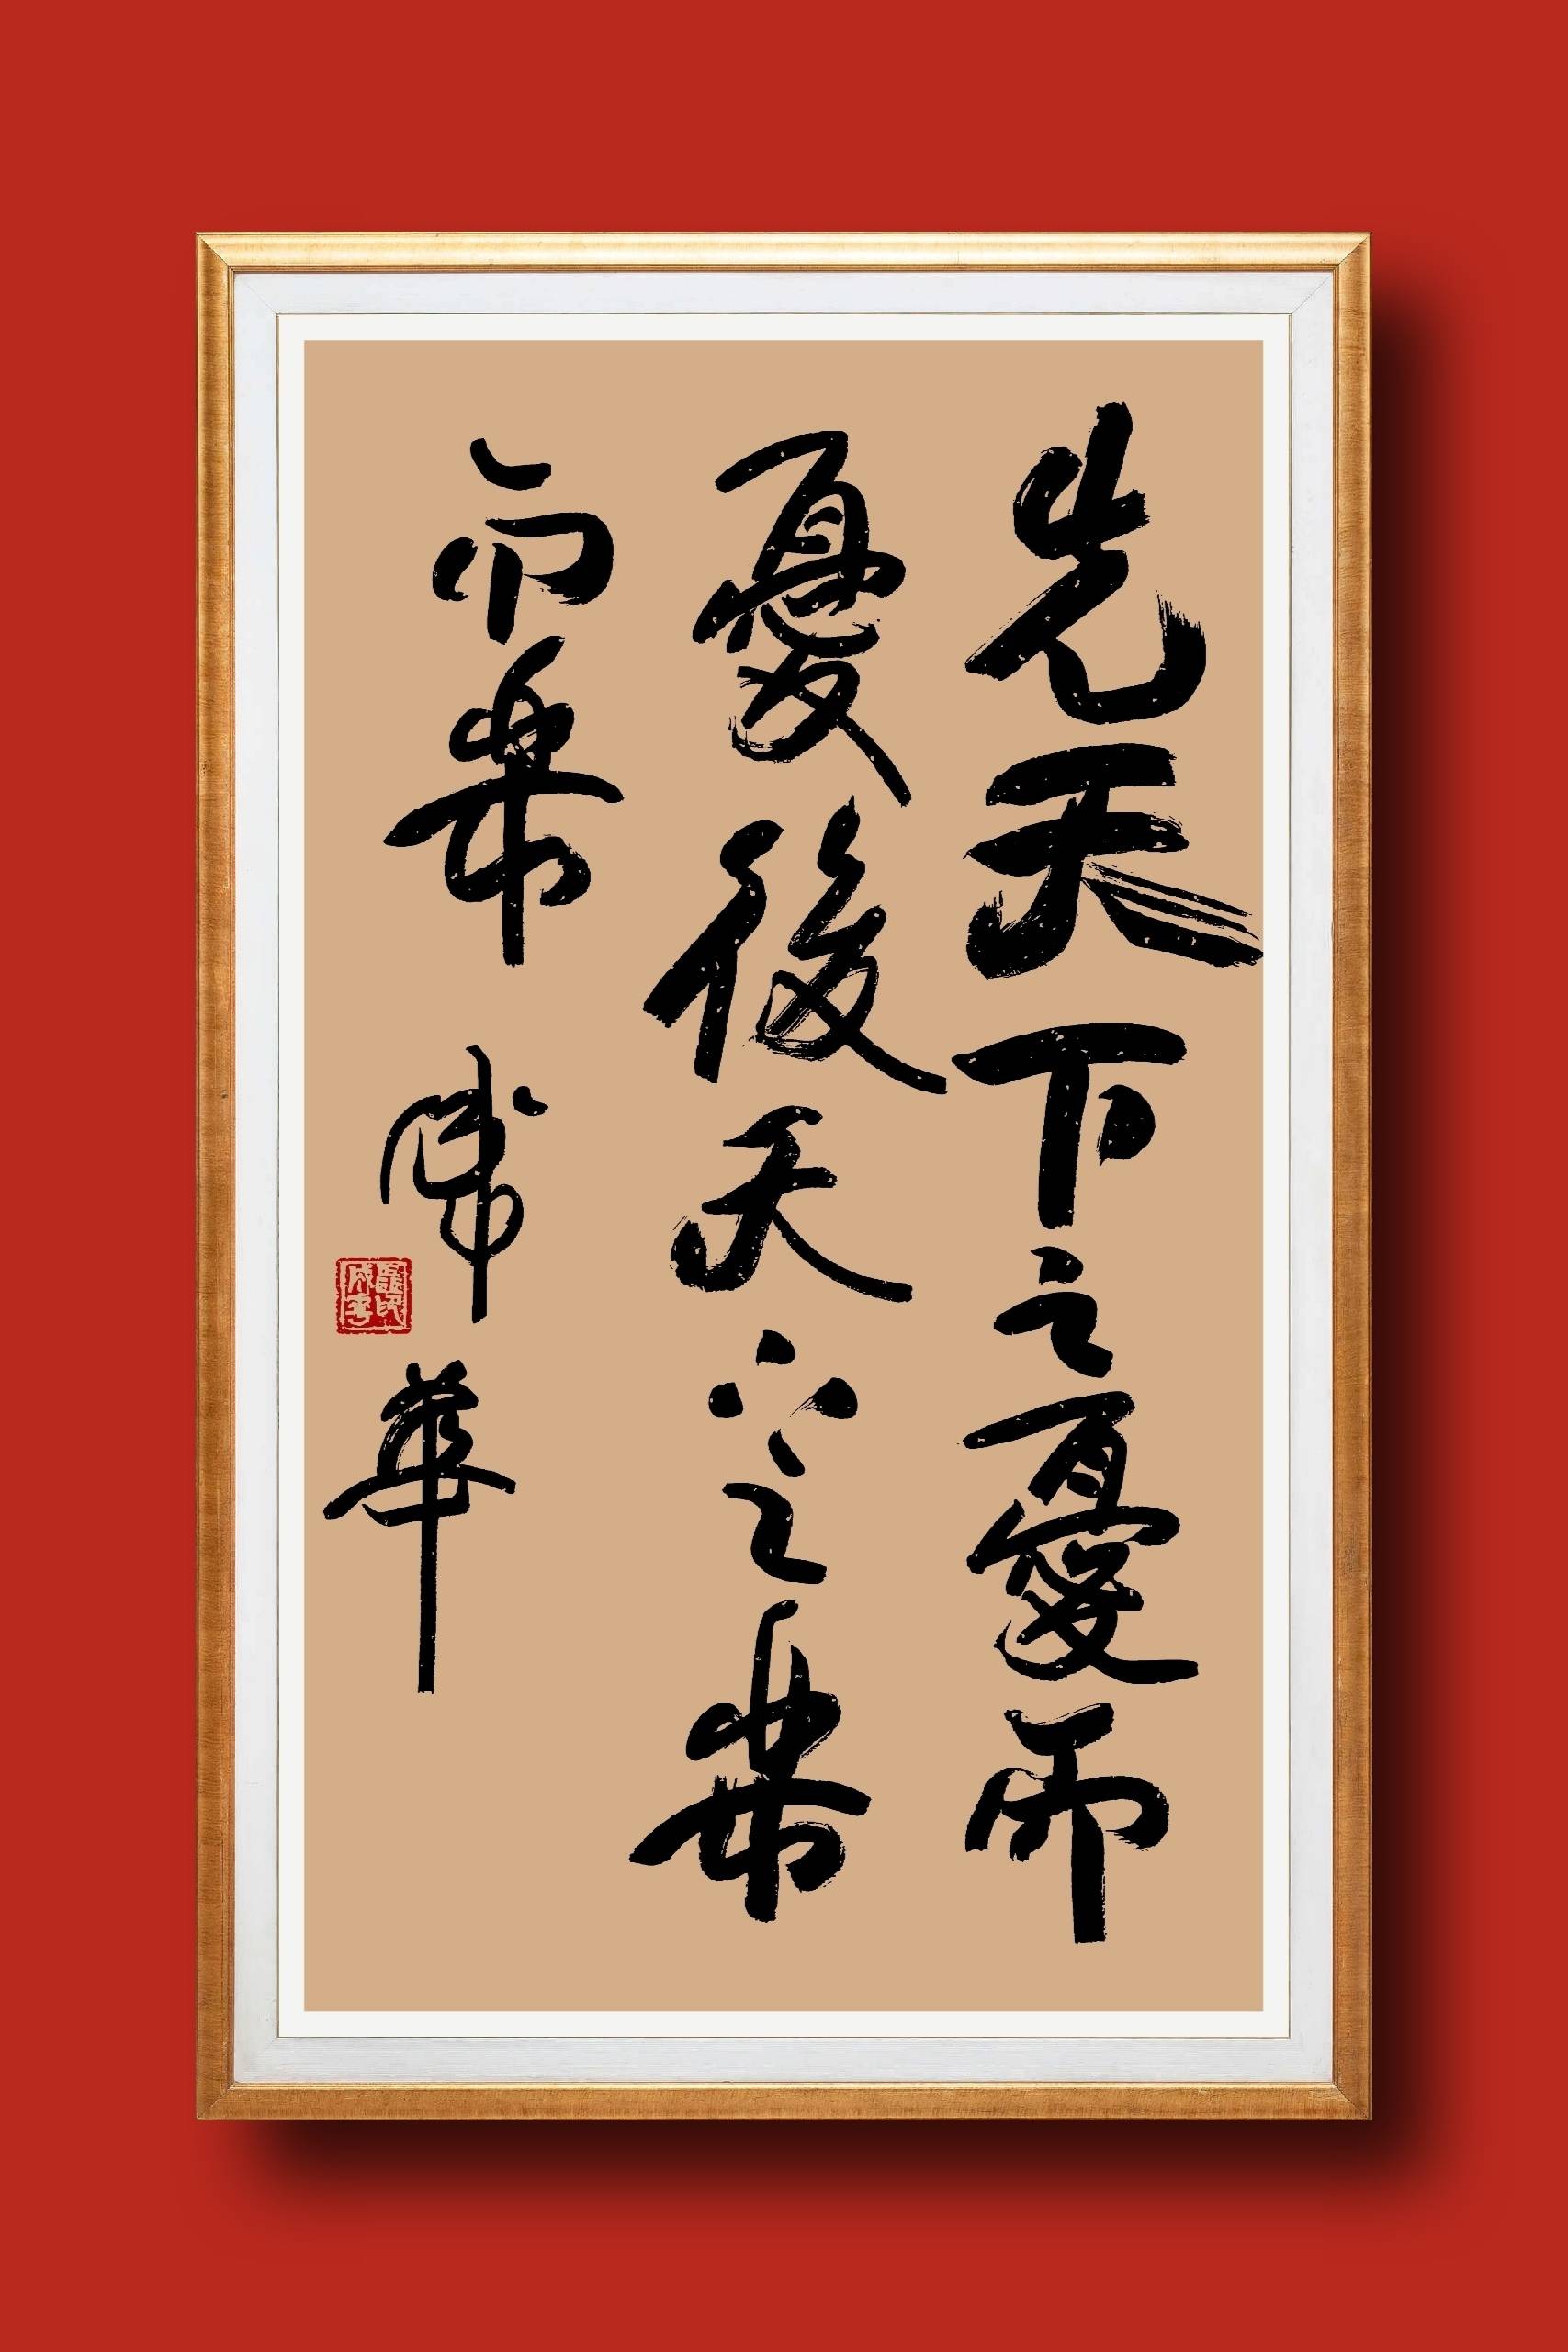 先天下之憂而
憂後天下之樂
而樂
華